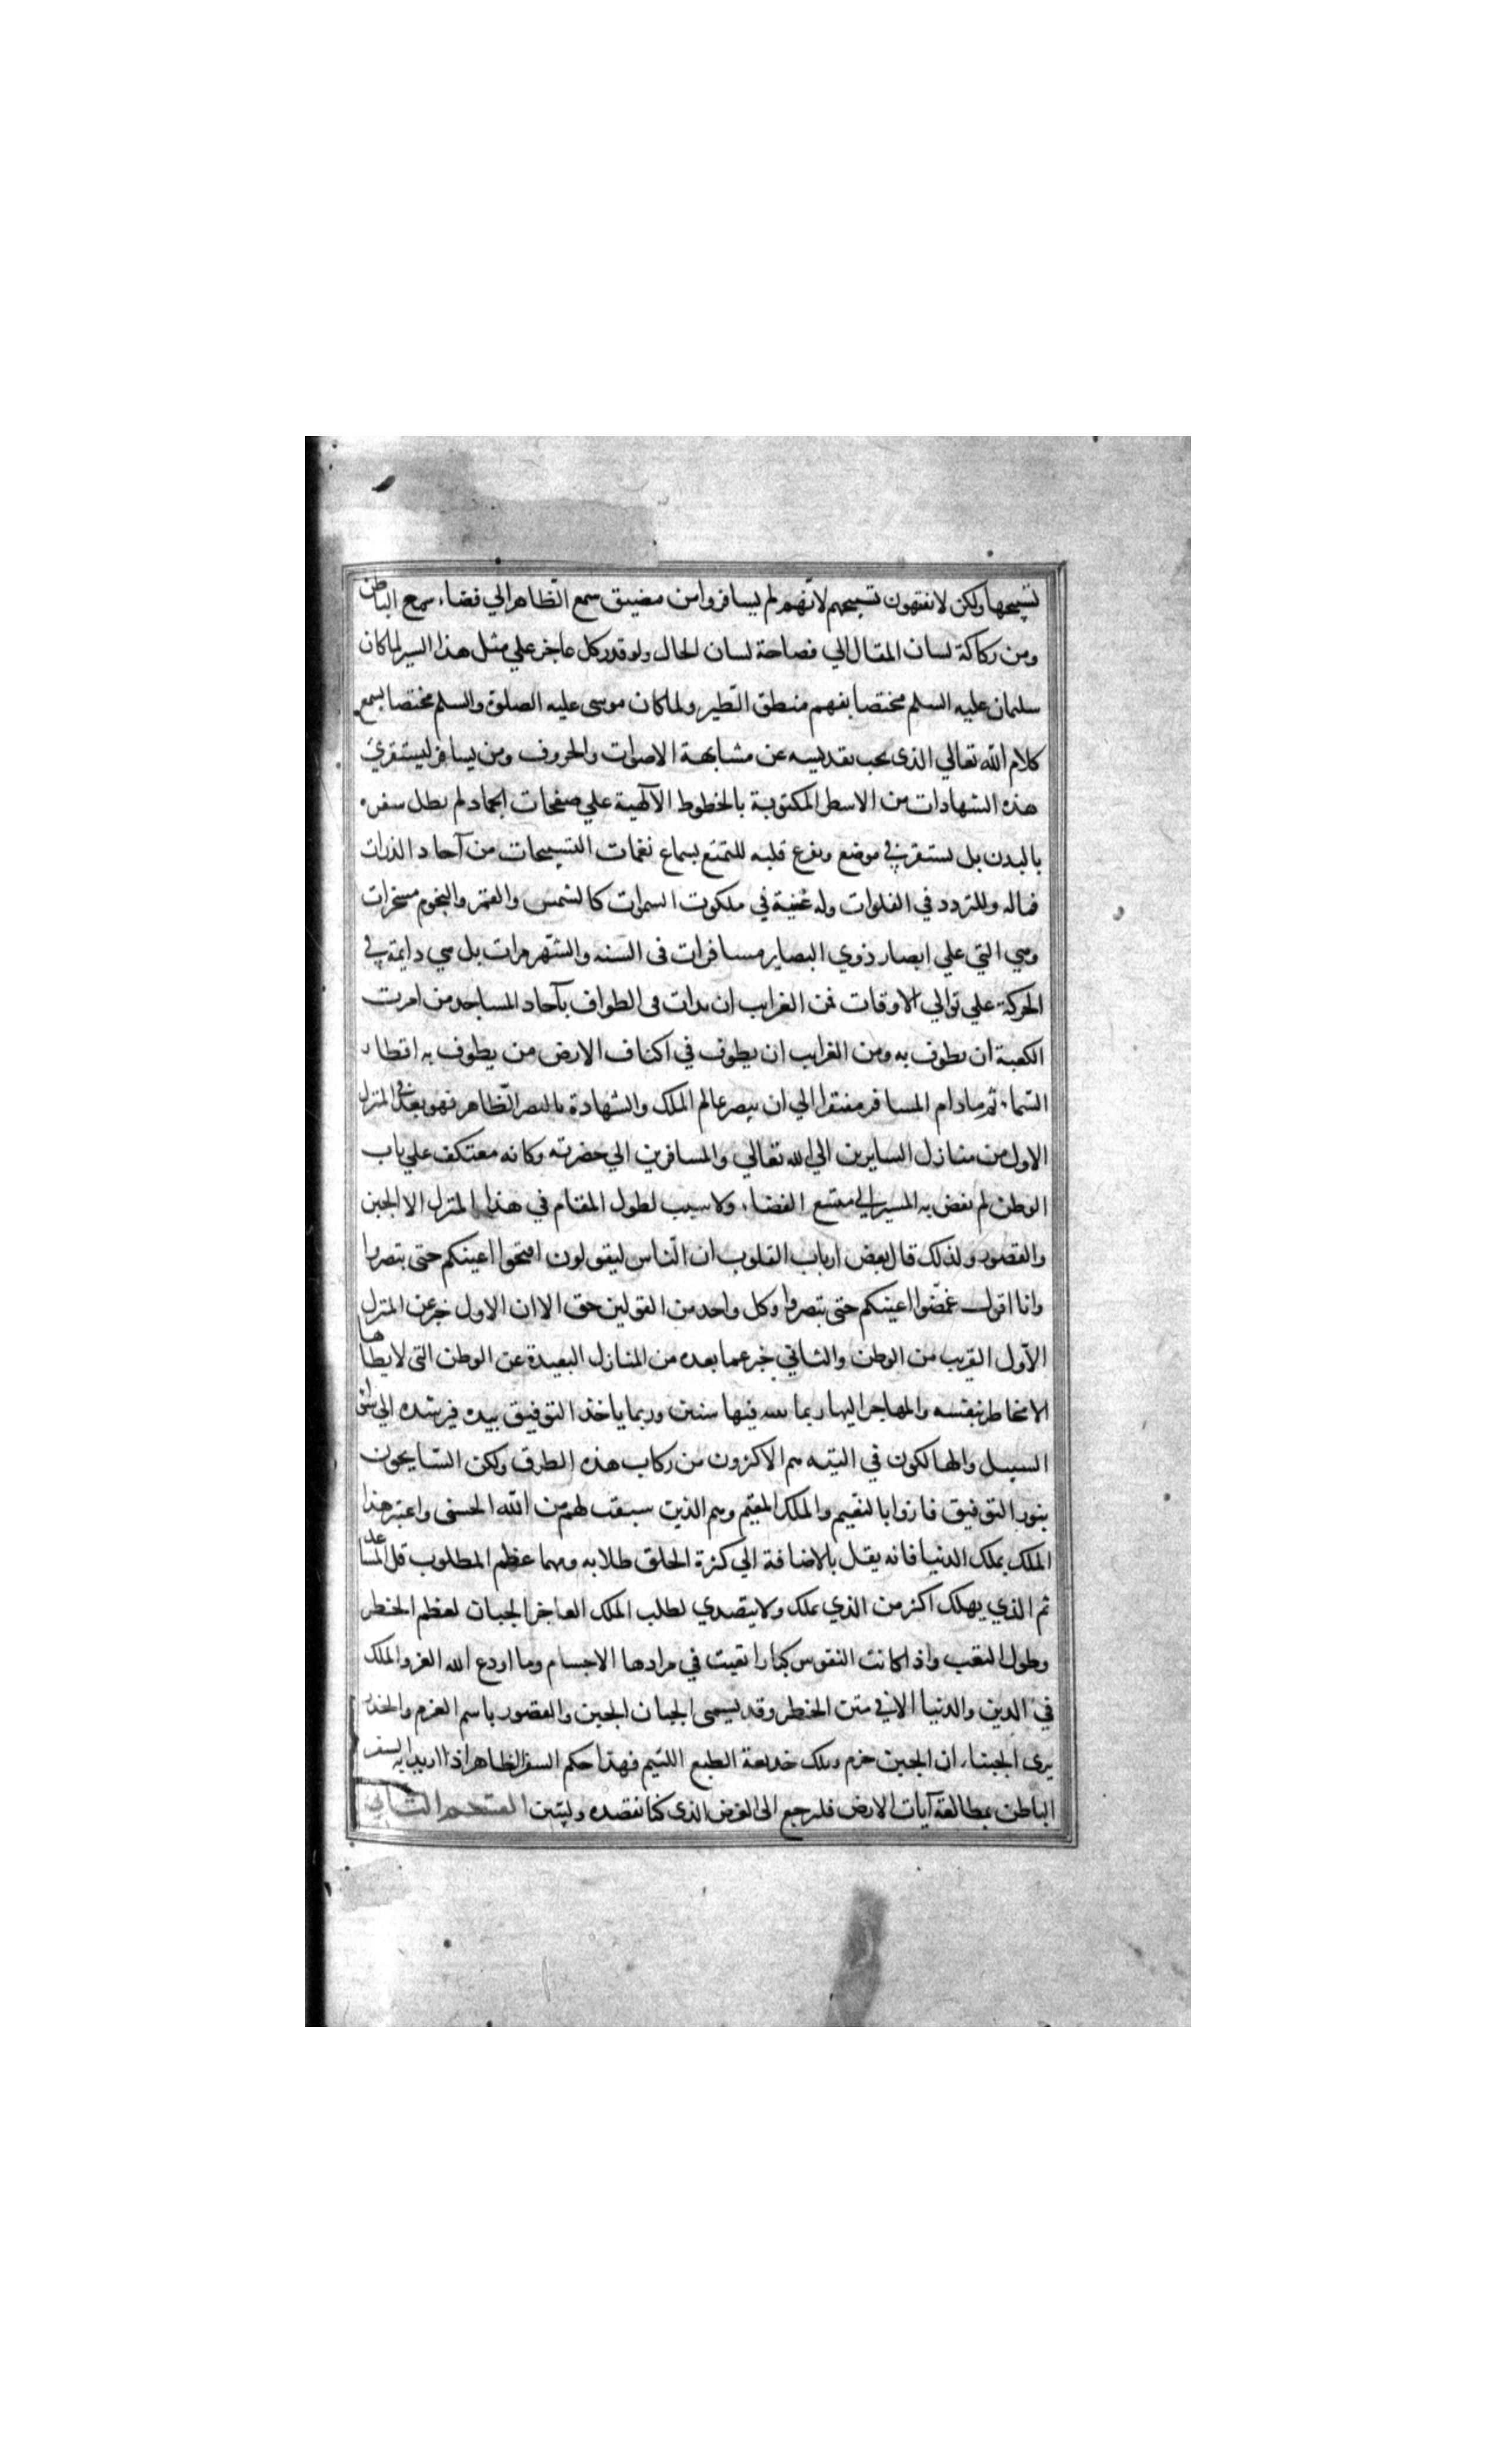 تسبيحها ولكن لا يفقهون تسبيحهم لانّهم لم يسافروا من مضيق سمع الظاهر الي فضاء سمع الباطن
ومن ركاكة لسان المقال الي فصاحة لسان الحال ولو قدر كل عاجز علي مثل هذا السير لما كان
سليمان عليه السلم مختصا بفهم منطق الطير ولما كان موسى عليه الصلوة والسلم مختصا بسمع
كلام الله تعالي الذى يجب تقديسه عن مشابهة الاصوات والحروف ومن يسافر ليستقرئ
هذه الشهادات من الاسطر المكتوبة بالخطوط الآلهية علي صفحات الجماد لم يطل سفره
بالبدن بل يستقر في موضع ويفرغ قلبه للتمتع بسماع نغمات التسبيحات من آحاد الذرات
فماله وللتردد في الفلوات وله غنية في ملكوت السموات كالشمس والقمر والنجوم مسخرات
وهي التي علي ابصار ذوي البصاير مسافرات في السنه والشهر مرات بل هي دايمة في
الحركة علي توالي الاوقات فمن الغرايب ان يدات في الطواف بآحاد المساجد من امرت
الكعبة ان يطوف به ومن الغرايب ان يطوف في اكناف الارض من يطوف به اقطار
السماء ثم مادام المسافر مفتقرا الي ان يبصر عالم الملك والشهادة بالبصر الظاهر فهو بعد في المنزل
الاول من منازل السايرين الي الله تعالي والمسافرين الي حضرته وكانه معتكف علي باب
الوطن لم يفض به المسير الي متسع الفضاء ولا سبب لطول المقام في هذا المنزل الا الجبن
والقصور ولذلك قال بعض ارباب القلوب ان الناس ليقولون افتحوا اعينكم حتى تبصروا
وانا اقول غمّضوا اعينكم حتى تبصروا وكل واحد من القولين حق الا ان الاول خبر عن المنزل
الاول القريب من الوطن والثاني خبر عما بعده من المنازل البعيدة عن الوطن التى لا يطاها
الا مخاطر بنفسه والمهاجر اليها ربما يتيه فيها سنين وربما ياخذ التوفيق بيده فيرشده الي سواء
السبيل والهالكون في التيه هم الاكثرون من ركاب هذه الطرق ولكن السايحون
بنور التوفيق فازوا بالنعيم والملك المقيم وهم الذين سبقت لهم من الله الحسنى واعتبر هذا
الملك بملك الدنيا فانه يقل بالاضافة الي كثرة الخلق طلابه ومهما عظم المطلوب قل المساعد
ثم الذي يهلك اكثر من الذي يملك ولا يتصدي لطلب الملك العاجز الجبان لعظم الخطر
وطول التعب واذا كانت النفوس كبارا تعبت في مرادها الاجسام وما اودع الله العز والملك
في الدين والدنيا الا في متن الخطر وقد يسمى الجبان الجبن والقصور باسم الحزم والحذر
يرى الجبناء ان الجبن حزم وتلك خديعة الطبع اللئيم فهذا حكم السفر الظاهر اذا اريد به السفر
الباطن بمطالعة آيات الارض فلنرجع الى الغرض الذى كنا نقصده ولنبين القسم الثاني